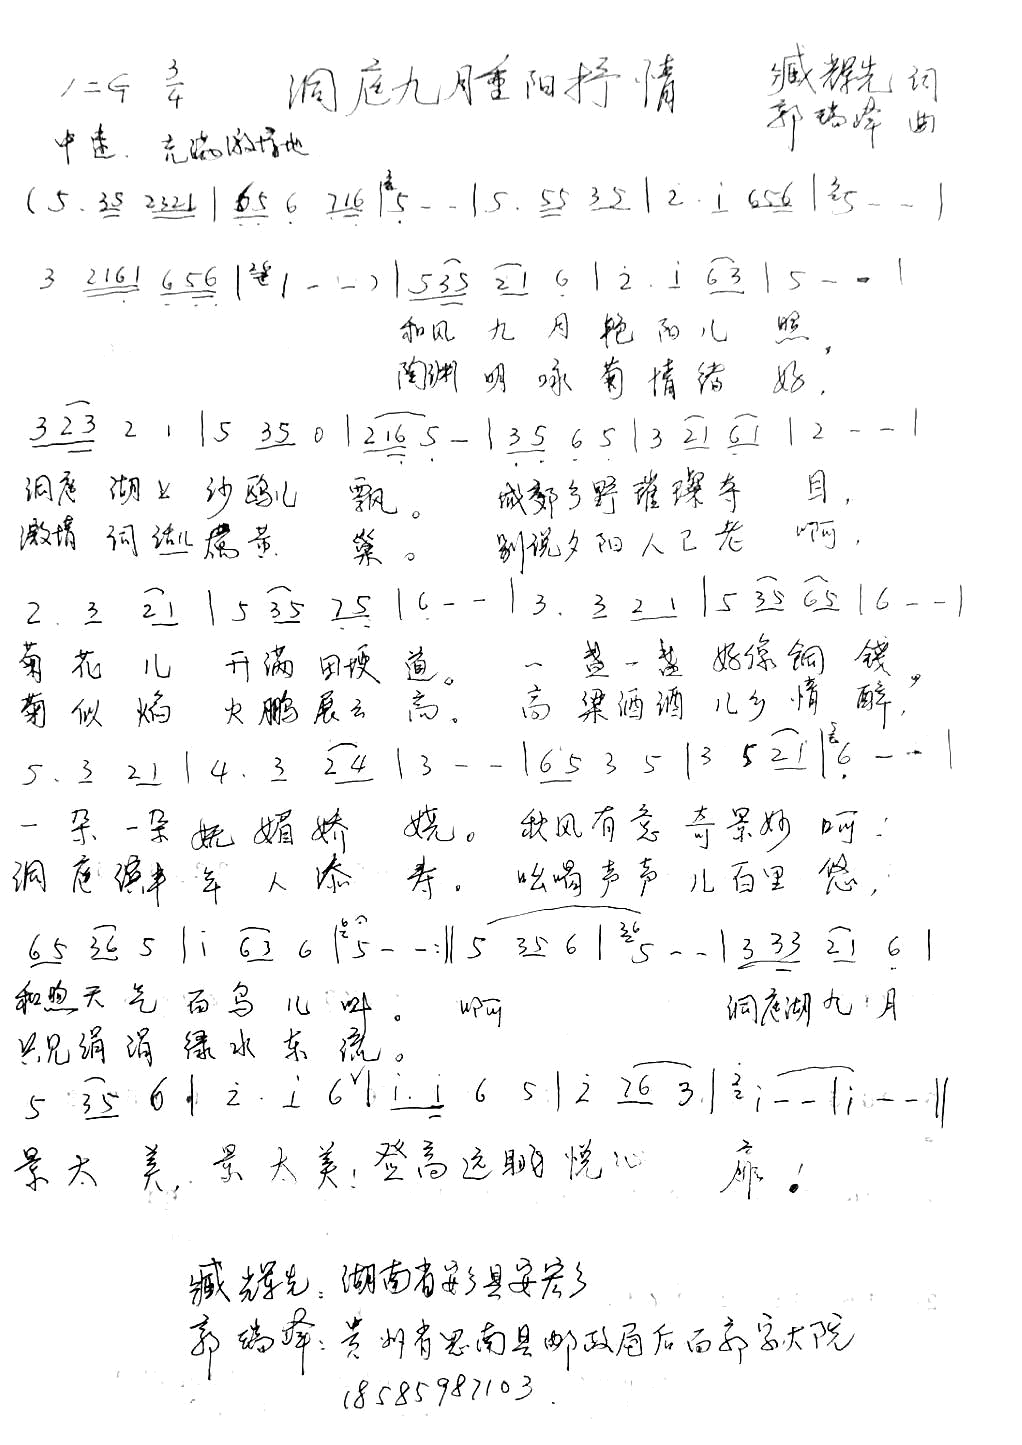 1=G 3/4 洞庭九月重阳抒情 臧辉先 词
郭瑞峰 曲
中速. 充满激情地
(5. 35 2321 | 65 6 716 | 5 - - | 5. 55 35 | 2. i 656 | 5 - - |
3 2161 656 | 1 - - ) | 535 21 6 | 2. i 63 | 5 - - |
和风 九 月 艳 阳 儿 照,
陶渊 明 咏 菊 情 绪 好,
323 2 1 | 5 35 0 | 216 5 - | 35 6 5 | 3 21 61 | 2 - - |
洞庭 湖上 沙鸥儿 飘。 城郊乡野璀璨夺 目,
激情 词话儿 黄 巢。 别说夕阳人已老 啊,
2. 3 21 | 5 35 25 | 6 - - | 3. 3 21 | 5 35 65 | 6 - - |
菊 花 儿 开满田埂 道。 一 盏一盏 好像铜 钱,
菊 似 焰 火鹏展云 高。 高 粱酒酒 儿乡 情 醉,
5. 3 21 | 4. 3 24 | 3 - - | 65 3 5 | 3 5 21 | 6 - - |
一 朵 一朵 妩 媚 娇 娆。 秋风有意 奇景妙 呵:
洞 庭 年 人 添 寿。 吆喝声声 儿百里 悠,
65 36 5 | i 63 6 | 5 - - :|| 5 35 6 | 5 - - | 333 21 6 |
和煦天 气 百 鸟 儿 叫。 啊 洞庭湖九 月
只见绢涓 绿 水 东 流。
5 35 6 | 2. i 6 | i. i 6 5 | 2 26 3 | i - - | i - - ||
景 太 美, 景 太 美! 登高远眺 悦 心 扉!
臧辉先: 湖南省安乡县安宏乡
郭瑞峰: 贵州省思南县邮政局后面郭家大院
18585987103.